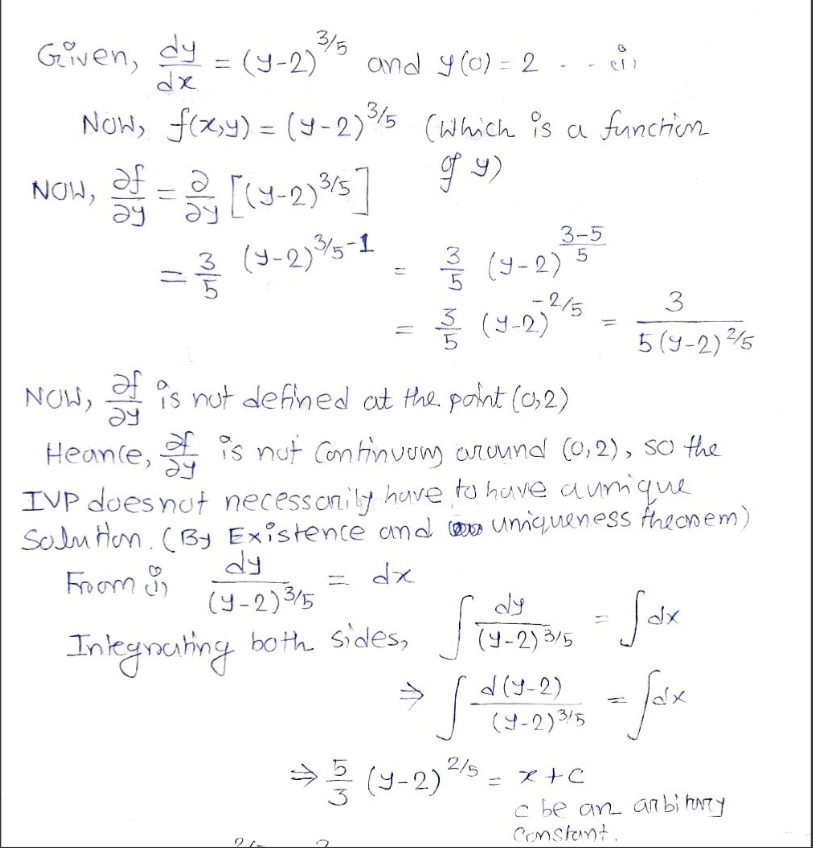 Given, dy/dx = (y-2)^3/5 and y(0) = 2 - - (i)
Now, f(x,y) = (y-2)^3/5 (Which is a function of y)
NOW, ∂f/∂y = ∂/∂y [(y-2)^3/5]
= 3/5 (y-2)^3/5-1 = 3/5 (y-2)^3-5/5
= 3/5 (y-2)^-2/5 = 3/5(y-2)^2/5
NOW, ∂f/∂y is not defined at the point (0,2)
Heance, ∂f/∂y is not Continuoum around (0,2), so the
IVP does not necessarily have to have a unique
Solution. (By Existence and uniqueness theorem)
From (i) dy/(y-2)^3/5 = dx
Integrating both sides, ∫ dy/(y-2)^3/5 = ∫dx
⇒ ∫ d(y-2)/(y-2)^3/5 = ∫dx
⇒ 5/3 (y-2)^2/5 = x + C
c be an arbitrary
Constant.